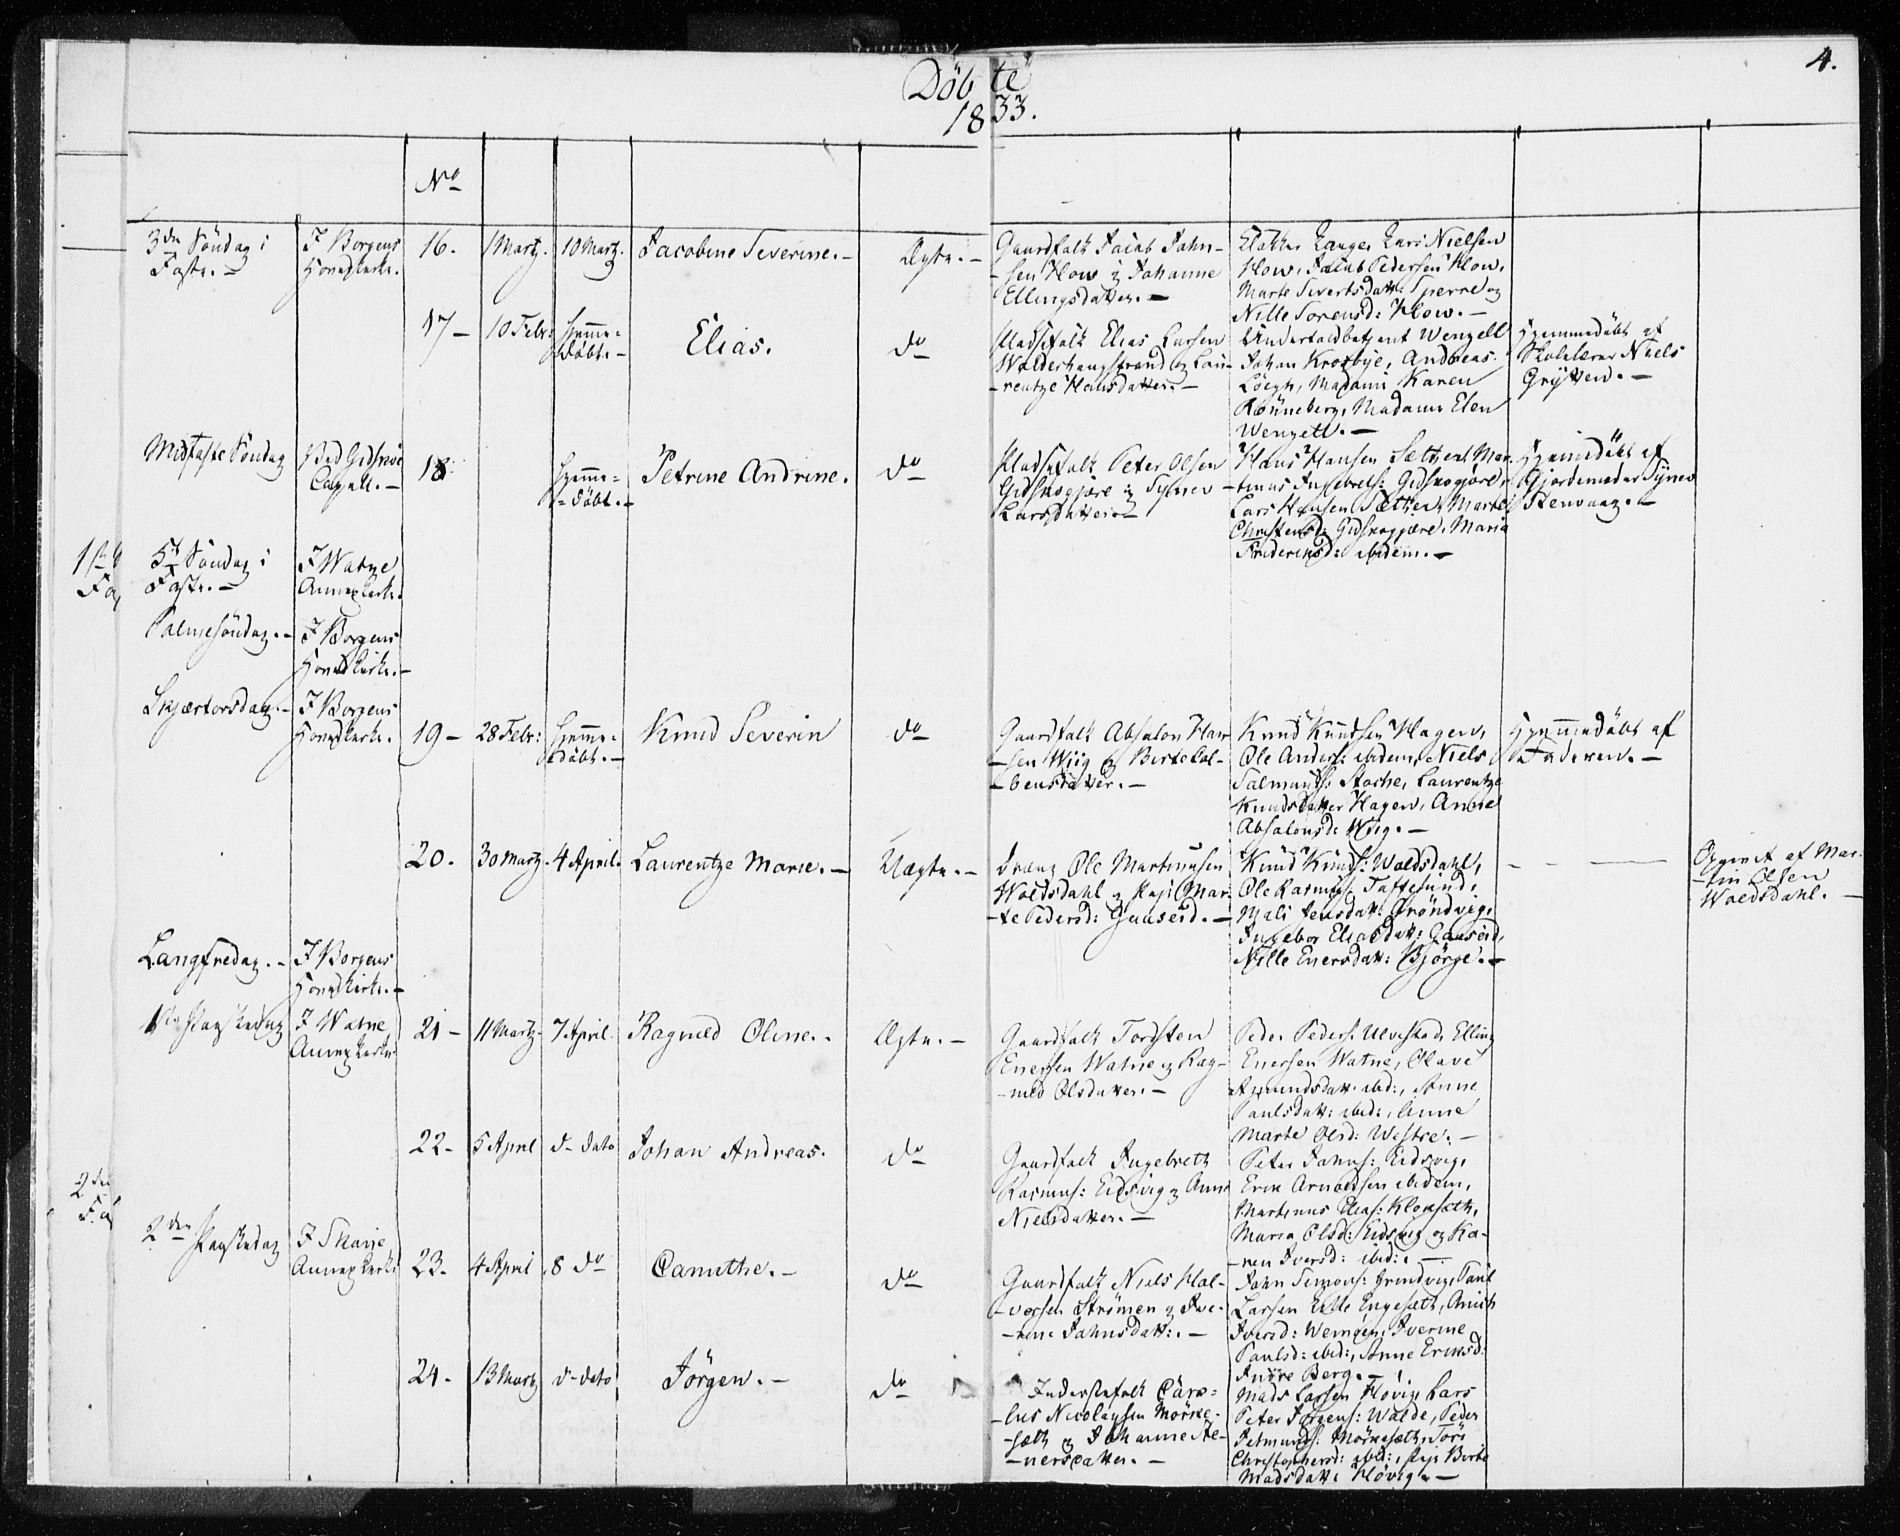 4.
Döbte
1833.
No
3die Söndag i
Faste. -
I Borgens
Hovedkirke.
16.
1 Martz.
10 Martz.
Jacobine Severine. -
Ægte. -
Gaardfolk Jacob Jahn-
-sen How og Johanne
Ellingsdatter. -
Klokker Lange, Lars Nielsen
How, Jacob Pedersen How,
Marte Sivertsdatt: Sperre og
Nille Torensd: How. -
17 -
10 Febr:
Hjemme=
döbt. -
Elias.
do
Pladsfolk Elias Larsen
Walderhaugstrand og Lau-
-rentze Hansdatter. -
Undertoldbetjent Wenzell
Johan Krotbye, Andreas
Löegh, Madame Karen
Rönneberg, Madame Elen
Wenzell. -
Hjemmedöbt af
Skolelærer Niels
Grÿtten. -
Midfaste Söndag
Ved Gidsköe
Capell. -
18
Hjemme-
-döbt. -
Petrine Andrine.
do
Pladsfolk Peter Olsen
Gidskogjære og Synev
Larsdatter. -
Hans Hansen Sætther, Mar-
-tinus Ingebrets: Gidskogjøre,
Lars Hansen Sætther, Marte
Christensd: Gidskogjære, Maria
Frideriksd: ibidem. -
Hjemmedöbt af
Gjordemoder Synev
Stenvaag. -
5te Söndag i
Faste. -
I Watne
Annexkirke.
Palmesöndag. -
I Borgens
Hovedkirke. -
Skjærtorsdag. -
I Borgens
Hovedkirke.
19 -
28 Febr:
Hjemme-
döbt. -
Knud Severin
do
Gaardfolk Absalon Han-
-sen Wiig og Berte Col-
-bensdatter. -
Knud Knudsen Hagen,
Ole Anders: ibidem, Niels
Salmunds: Stache, Laurentze
Knudsdatter Hagen, Anne
Absalonsd: Wiig. -
Hjemmedöbt af
Faderen. -
20.
30 Martz.
4 April.
Laurentze Marie. -
Uægte. -
Dreng Ole Martinusen
Woldsdahl og Pige Mar-
-te Pedersd: Gaaseid. -
Knud Knuds: Woldsdahl,
Ole Rasmus: Taftesund,
Mali Jensdatt: Gröndvig,
Ingebor Eliasdatt: Gaaseid,
Nille Enersdatt: Bjørge. -
- - -
Opgivet af Mar-
-tin Olsen
Woldsdahl. -
Langfredag. -
I Borgens
Hovedkirke. -
1ste Paaskedag
I Watne
Annexkirke.
21 -
11 Martz.
7 April.
Ragnild Oline. -
Ægte. -
Gaardfolk Torsten
Enersen Watne og Rag-
-nild Olsdatter. -
Peder Peders: Ulvestad, Elling
Enersen Watne, Olave
Amundsdatt: ibid:, Anne
Paulsdatt: ibid:, Anne
Marte Olsd: Westre. -
22 -
5 April
d- dato
Johan Andreas.
do
Gaardfolk Ingebreth
Rasmus: Eidsvig og Anne
Nielsdatter. -
Peter Jahns: Eidsvig,
Erik Arnoldsen ibidem,
Martinus Elias: Kloksæth,
Maria Olsd: Eidsvig og Ka-
-ren Iversd: ibid:. -
2den Paaskedag
I Skarie
Annexkirke
23.
4 April
8 do
Canuthe. -
do
Gaardfolk Niels Hal-
-vorsen Strömen og Ive-
-rine Jahnsdatt:. -
Jahn Simons: Grindvig, Paul
Larsen Lille Engesæth, Anne
Iversd: Wemøen, Iverine
Paulsd: ibid:, Anne Eriksd:
Indre Berg. -
24.
13 Martz
d- dato
Jörgen. -
do
Inderstefolk Caro=
-lus Nicolaysen Mørke-
-sæth og Johanne Ste-
-nersdatter. -
Mads Larsen Hovig, Lars
Peter Jörgens: Walde, Peder
Jetmunds: Mørkesæth, Søri
Christophersd: ibid:, Pige Berte
Madsdatt: Høvig. -
1ste
Fa
2den
Fa